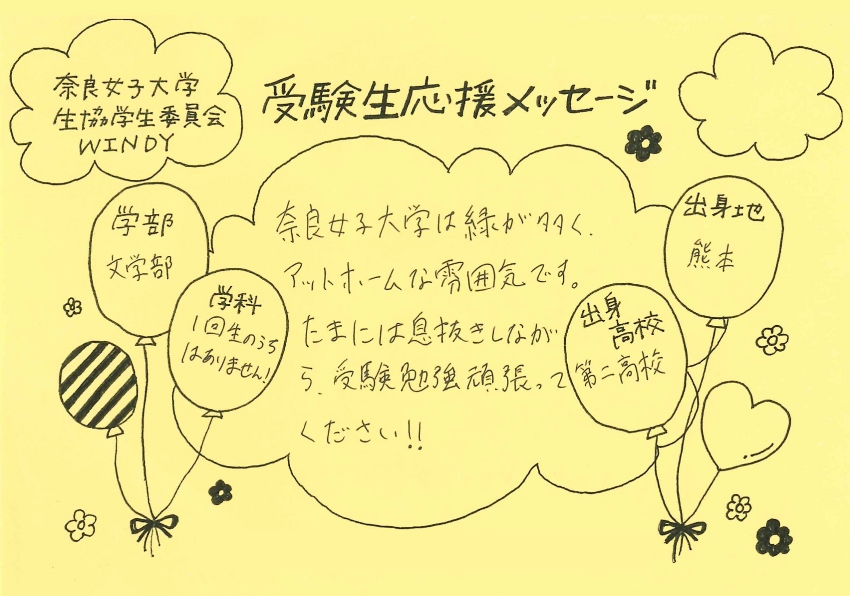 奈良女子大学
生協学生委員会
WINDY
受験生応援メッセージ
学部
文学部
学科
1回生のうち
はありません!
奈良女子大学は緑が多く、
アットホームな雰囲気です。
たまには息抜きしなが
ら、受験勉強頑張って
ください!!
出身地
熊本
出身
高校
第二高校